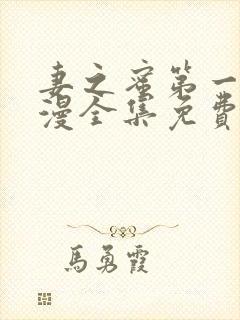 妻之蜜第一
漫全集免費
馬勇霞